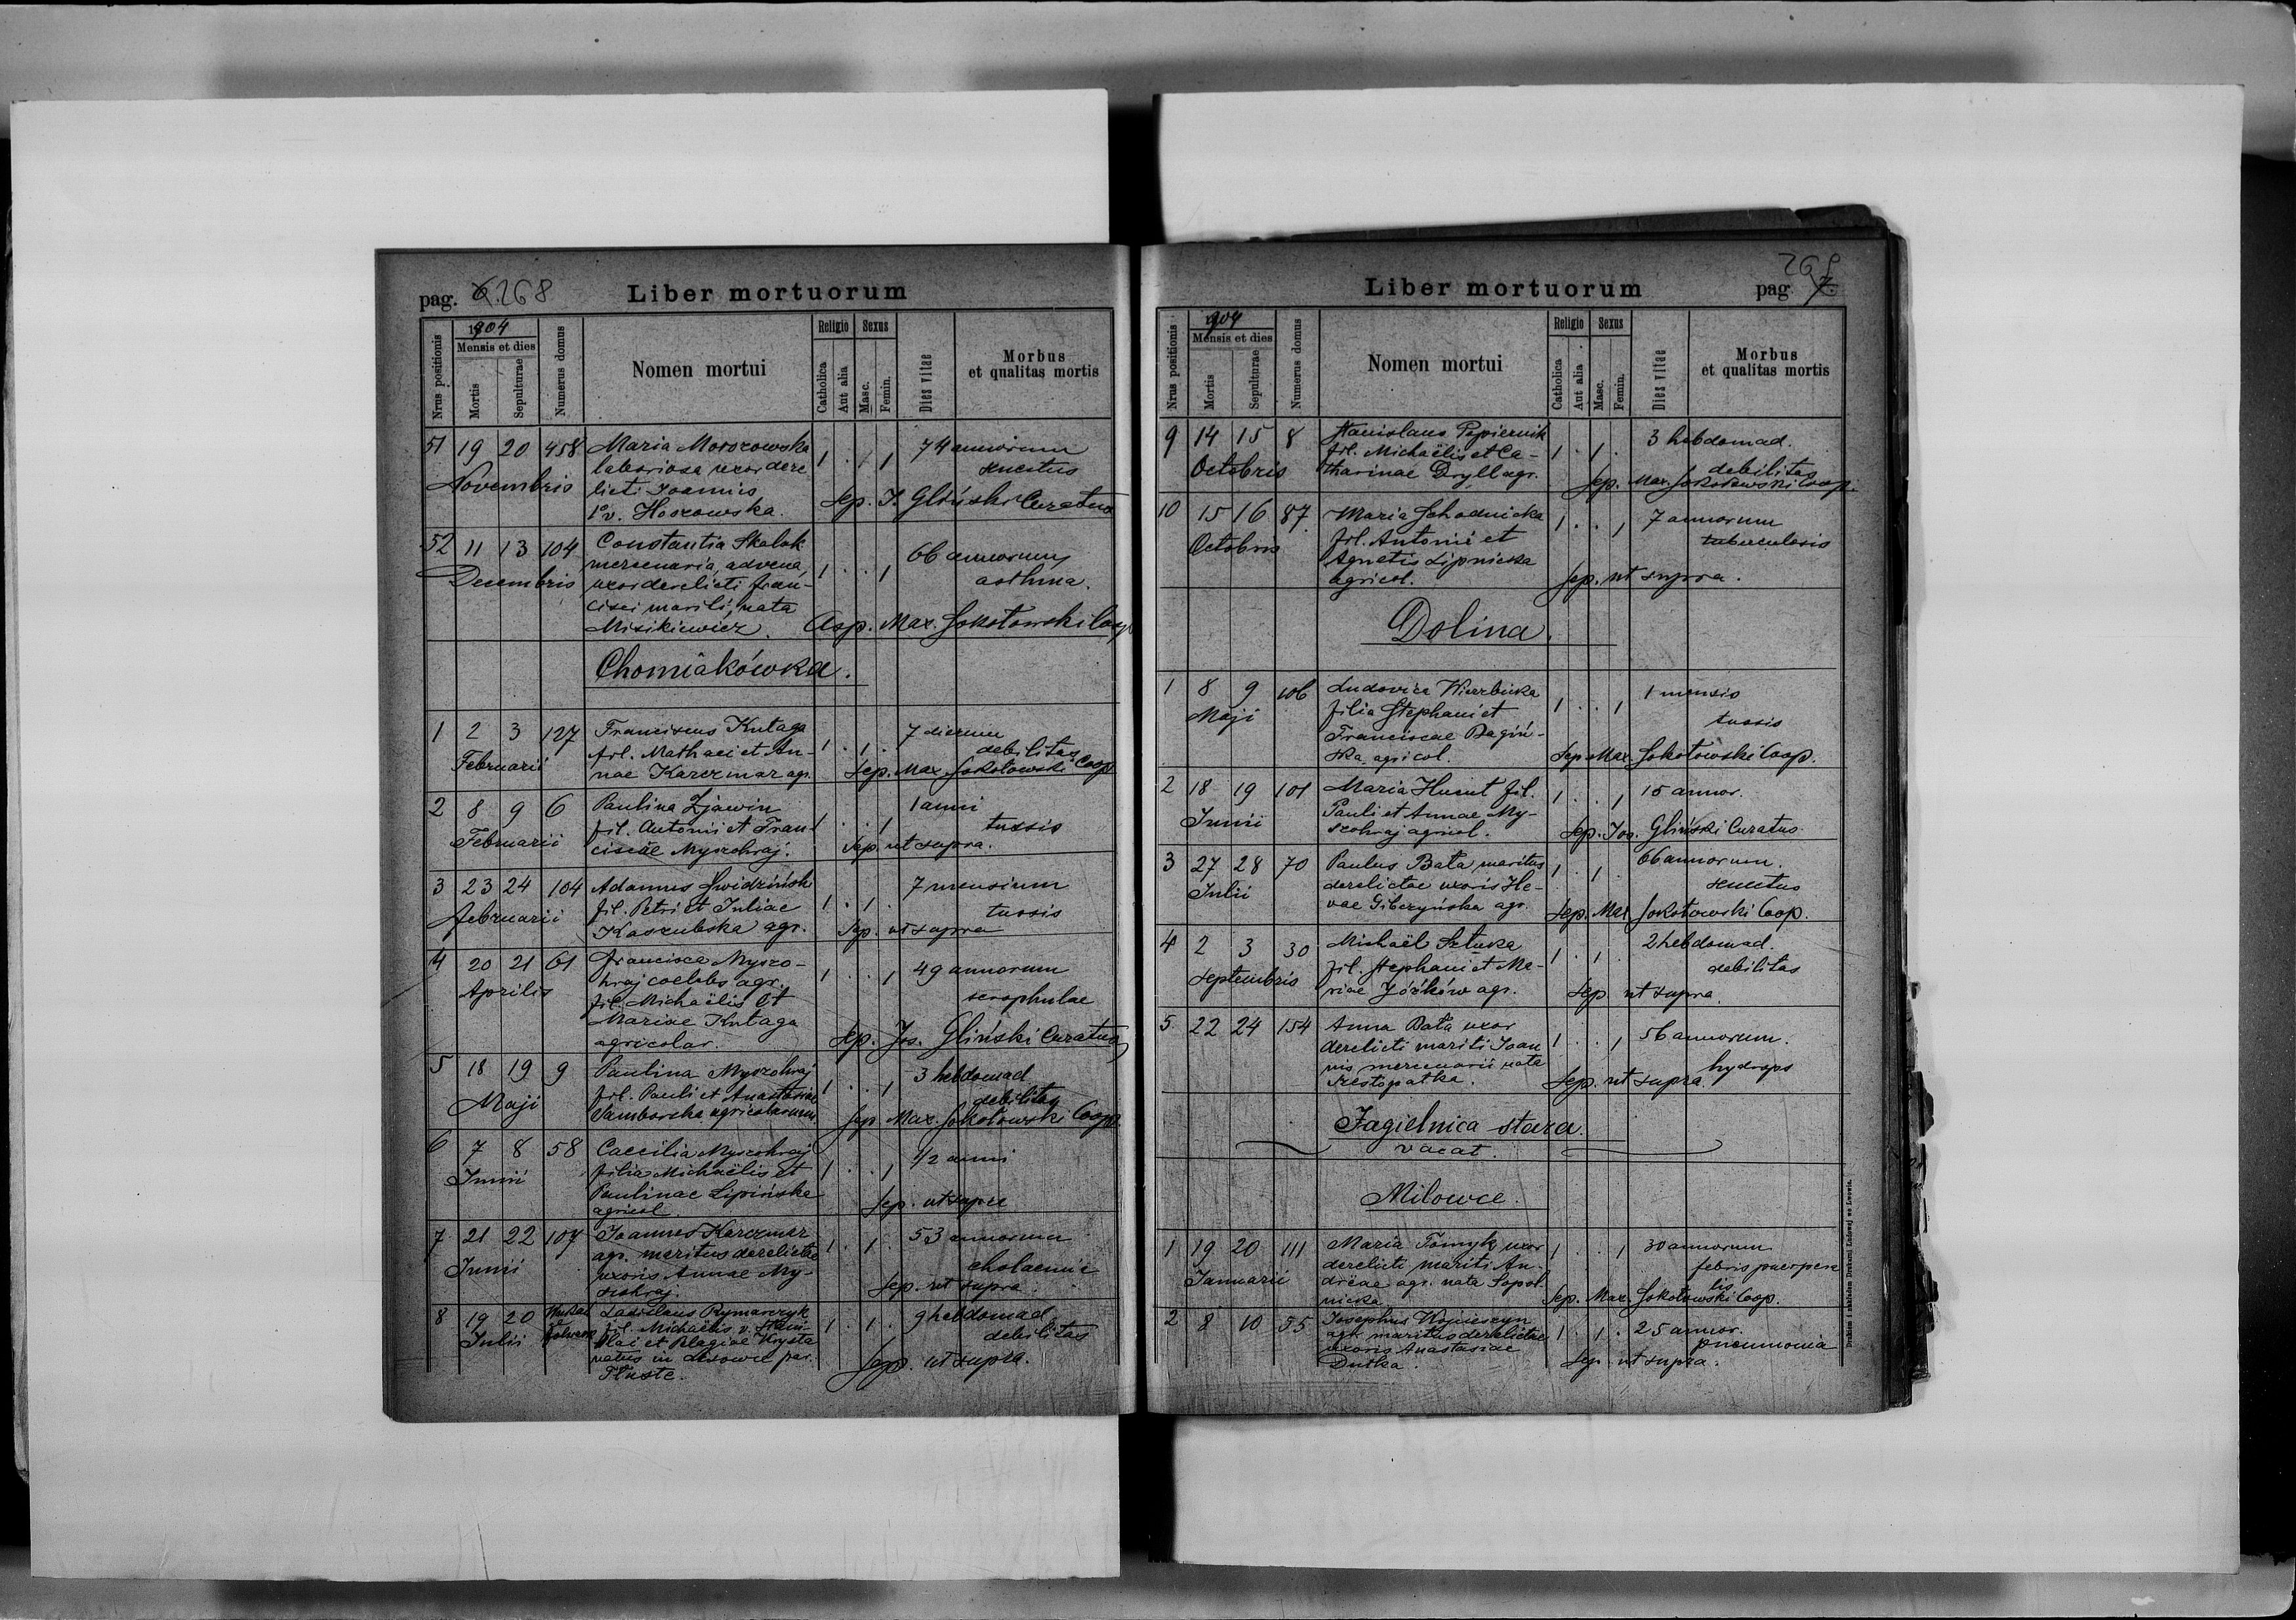 pag. 6. 268 Liber mortuorum
Nrus positionis 1904 Mensis et dies Mortis Sepulturae Numerus domus Nomen mortui Religio Catholica Aut alia Sexus Masc. Femin. Dies vitae Morbus et qualitas mortis
51 19 20 458 Maria Morozowska 1 . . 1 74 annorum
laboriosa uxor dere senectus
Novembris licti Joannis Sep. J. Gliński Curatus
1º v. Hoozowska.
52 11 13 104 Constantia Skalak 66 annorum
mercenaria, advena, 1 . . 1 asthma.
Decembris uxor derelicti Fran-
cisci mariti, nata
Misikiewicz. Asp. Max. Sokołowski Coop
Chomiakówka.
1 2 3 127 Franciscus Kutaga 7 dierum
fil. Mathaei et An- 1 . 1 . debilitas
Februarii nae Karczmar agr. Sep. Max. Sokołowski Coop
2 8 9 6 Paulina Zjawin 1 anni
fil. Antonii et Fran- 1 . . 1 tussis
Februarii ciscae Myszohraj. Sep. ut supra.
3 23 24 104 Adamus Swidziński 7 mensium
fil. Petri et Juliae 1 . 1 . tussis
Februarii Kaszubska agr. Sep. ut supra
4 20 21 61 Francisca Myszo- 1 . . 1 49 annorum
Aprilis hraj coelebs agr.
fil. Michaëlis et scrophulae
Mariae Kutaga
agricolar. Sep. Jos. Gliński Curatus
5 18 19 9 Paulina Myszohraj 3 hebdomad
fil. Pauli et Anastasiae 1 . . 1 debilitas
Maji Samborska agricolarum Sep Max. Sokołowski Coop.
6 7 8 58 Caecilia Myszohraj 1/2 anni
Junii filia Michaëlis et 1 . . 1
Paulinae Lipińska Sep. ut supra
agricol.
7 21 22 107 Joannes Karczmar 53 annorum
agr. maritus derelictae 1 . 1 . cholaemia
Junii uxoris Annae My- Sep. ut supra.
szohraj.
8 19 20 Ladislaus Rymarczyk 9 hebdomad
Julii fil. Michaëlis v. Stani- 1 . 1 . debilitas
slai et Pelagiae Krysta
natus in par. Sep. ut supra.
Tłuste.
Liber mortuorum pag. 7. 269
Nrus positionis 1904 Mensis et dies Mortis Sepulturae Numerus domus Nomen mortui Religio Catholica Aut alia Sexus Masc. Femin. Dies vitae Morbus et qualitas mortis
9 14 15 8 Stanislaus Papiernik 3 hebdomad.
fil. Michaëlis et Ca- 1 . 1 . debilitas
Octobris tharinae Dryll agr. Sep. Max. Sokołowski Coop.
10 15 16 87 Maria Schodnicka 1 . . 1 7 annorum
Octobris fil. Antonii et tuberculosis
Agnetis Lipnicka
agricol. Sep. ut supra.
Dolina.
1 8 9 106 Ludovica Wierzbicka 1 mensis
Maji filia Stephani et 1 . . 1 tussis
Franciscae Bagiń-
ska agricol. Sep Max Sokołowski Coop.
2 18 19 101 Maria Hucut fil. 1 . . 1 15 annor.
Junii Pauli et Annae My-
szohraj agricol. Sep. Jos. Gliński Curatus
3 27 28 70 Paulus Bata maritus 66 annorum.
Julii derelictae uxoris He- 1 . 1 . senectus
vae Giberzyńska agr. Sep. Max Sokołowski Coop.
4 2 3 30 Michaël Sztuka 1 . 1 . 2 hebdomad.
Septembris fil. Stephani et Ma- debilitas
riae Józków agr. Sep ut supra.
5 22 24 154 Anna Bata uxor 56 annorum.
derelicti mariti Joan 1 . . 1
nis mercenarii nata hydrops
Szestopatka. Sep. ut supra.
Jagielnica stara.
vacat.
Milowce.
1 19 20 111 Maria Tomyk uxor 1 . . 1 30 annorum
Januarii derelicti mariti An- febris puerpera
dreae agr. nata Sopol- lis
nicka Sep. Max. Sokołowski Coop.
2 8 10 55 Josephus Wojcieszyn 25 annor.
agr. maritus derelictae 1 . 1 . pneumonia
uxoris Anastasiae
Dutka. Sep ut supra.
Drukiem i nakładem Drukarni Ludowej we Lwowie.